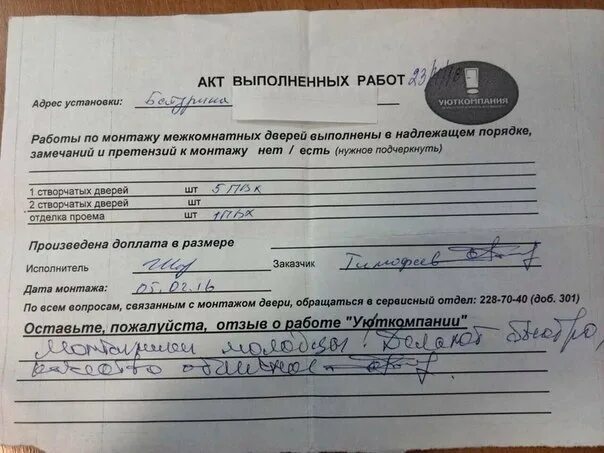 АКТ ВЫПОЛНЕННЫХ РАБОТ 23/
УЮТКОМПАНИЯ
Адрес установки: Батурина
Работы по монтажу межкомнатных дверей выполнены в надлежащем порядке,
замечаний и претензий к монтажу нет / есть (нужное подчеркнуть)
1 створчатых дверей шт 5 ПВХ
2 створчатых дверей шт
отделка проема шт 1 ПВХ
Произведена доплата в размере
Исполнитель Заказчик Тимофеев
Дата монтажа: 05.02.16
По всем вопросам, связанным с монтажом двери, обращаться в сервисный отдел: 228-70-40 (доб. 301)
Оставьте, пожалуйста, отзыв о работе "Уюткомпании"
Монтажники молодцы! Делают быстро,
качество отличное